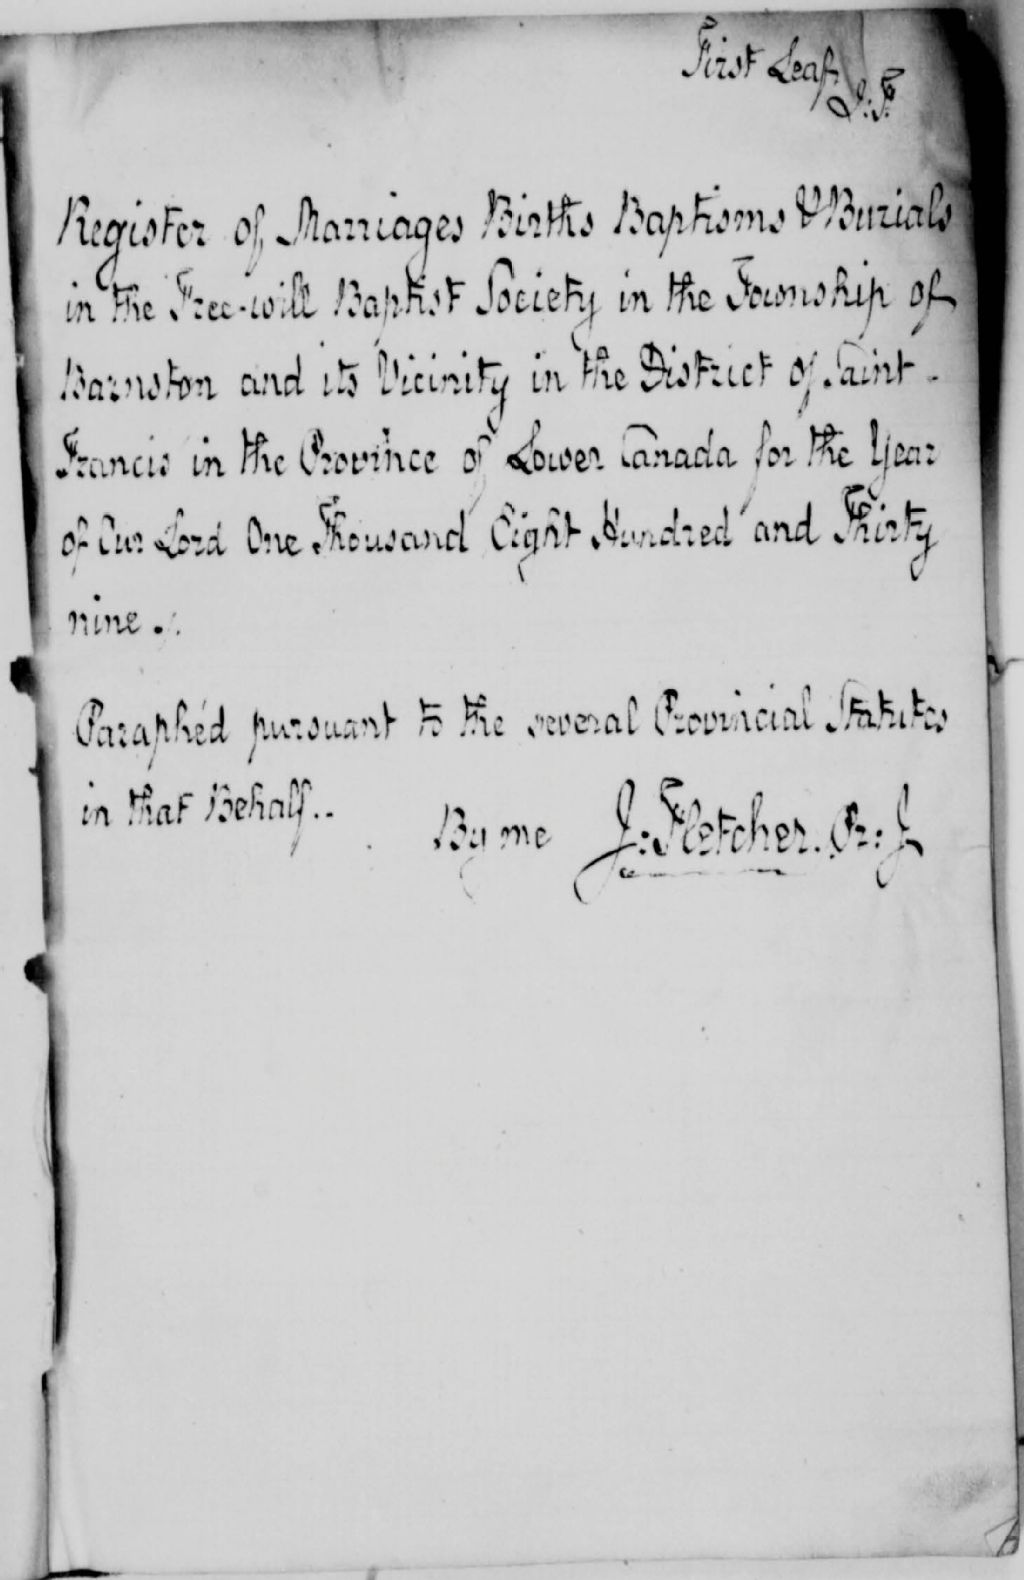 First Leaf
J: F.
Register of Marriages Births Baptisms & Burials
in the Free-will Baptist Society in the Township of
Barnston and its Vicinity in the District of Saint
Francis in the Province of Lower Canada for the Year
of Our Lord One Thousand Eight Hundred and Thirty
nine.
Paraphéd pursuant to the several Provincial Statutes
in that Behalf..
By me J: Fletcher. Pr: J